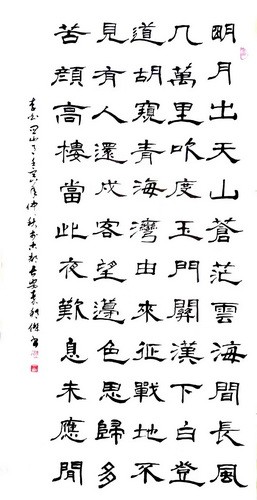 明月出天山蒼茫雲海間長風
几萬里吹度玉門關漢下白登
道胡窺青海灣由來征戰地不
見有人還戍客望邊色思歸多
苦顏高樓當此夜歎息未應閒